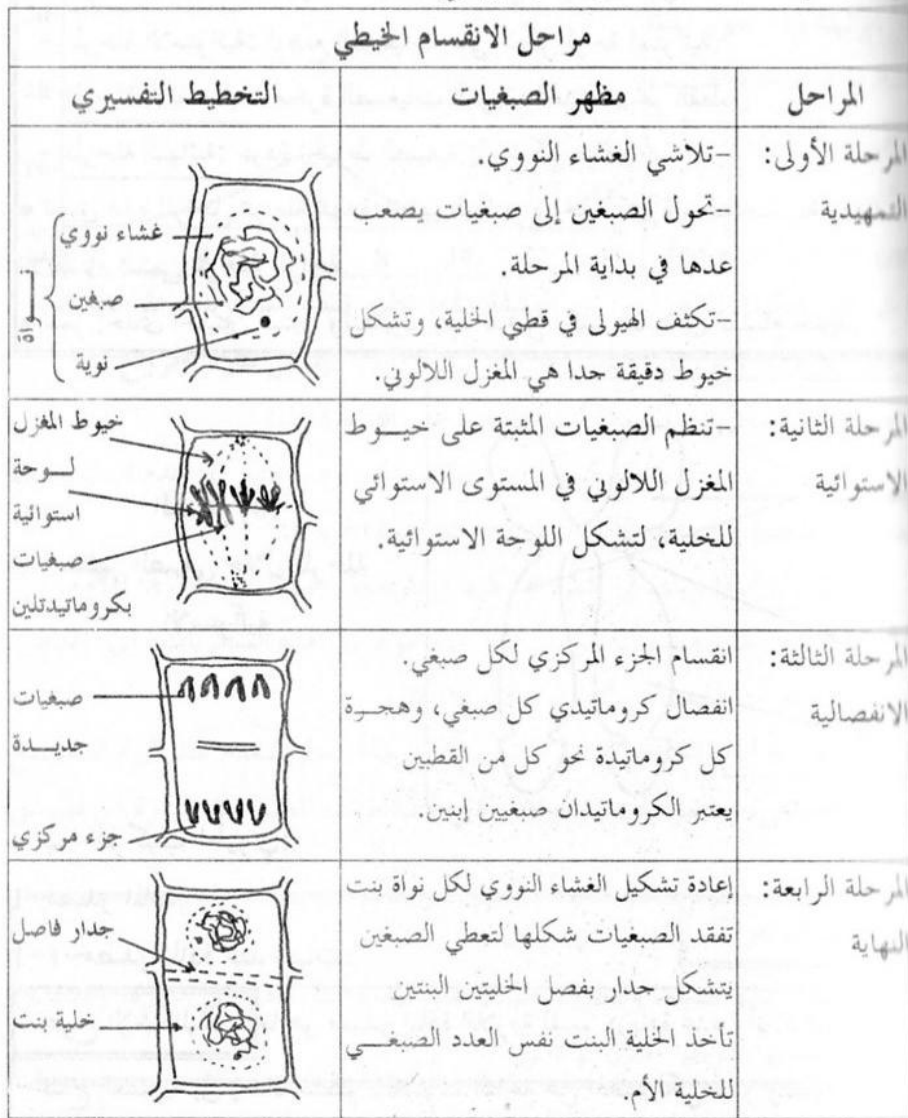 مراحل الانقسام الخيطي
المراحل
مظهر الصبغيات
التخطيط التفسيري
المرحلة الأولى:
التمهيدية
-تلاشي الغشاء النووي.
-تحول الصبغين إلى صبغيات يصعب
عدها في بداية المرحلة.
-تكثف الهيولى في قطبي الخلية، وتشكل
خيوط دقيقة جدا هي المغزل اللالوني.
غشاء نووي
صبغين
نوية
نـــواة
المرحلة الثانية:
الاستوائية
-تنظم الصبغيات المثبتة على خيــوط
المغزل اللالوني في المستوى الاستوائي
للخلية، لتشكل اللوحة الاستوائية.
خيوط المغزل
لــوحة
استوائية
صبغيات
بكروماتيدتلين
المرحلة الثالثة:
الانفصالية
انقسام الجزء المركزي لكل صبغي.
انفصال كروماتيدي كل صبغي، وهجــرة
كل كروماتيدة نحو كل من القطبين
يعتبر الكروماتيدان صبغيين إبنين.
صبغيات
جديــدة
جزء مركزي
المرحلة الرابعة:
النهاية
إعادة تشكيل الغشاء النووي لكل نواة بنت
تفقد الصبغيات شكلها لتعطي الصبغين
يتشكل جدار يفصل الخليتين البنتين
تأخذ الخلية البنت نفس العدد الصبغـــي
للخلية الأم.
جدار فاصل
خلية بنت